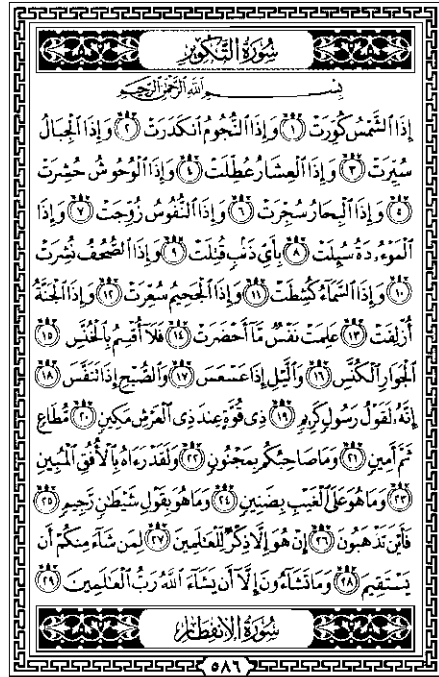 سُورَةُ التَّكْوِيرِ
بِسْمِ اللَّهِ الرَّحْمَٰنِ الرَّحِيمِ
إِذَا الشَّمْسُ كُوِّرَتْ ١ وَإِذَا النُّجُومُ انكَدَرَتْ ٢ وَإِذَا الْجِبَالُ
سُيِّرَتْ ٣ وَإِذَا الْعِشَارُ عُطِّلَتْ ٤ وَإِذَا الْوُحُوشُ حُشِرَتْ
٥ وَإِذَا الْبِحَارُ سُجِّرَتْ ٦ وَإِذَا النُّفُوسُ زُوِّجَتْ ٧ وَإِذَا
الْمَوْءُۥدَةُ سُئِلَتْ ٨ بِأَيِّ ذَنبٍ قُتِلَتْ ٩ وَإِذَا الصُّحُفُ نُشِرَتْ
١٠ وَإِذَا السَّمَآءُ كُشِطَتْ ١١ وَإِذَا الْجَحِيمُ سُعِّرَتْ ١٢ وَإِذَا الْجَنَّةُ
أُزْلِفَتْ ١٣ عَلِمَتْ نَفْسٌ مَّآ أَحْضَرَتْ ١٤ فَلَآ أُقْسِمُ بِالْخُنَّسِ ١٥
الْجَوَارِ الْكُنَّسِ ١٦ وَالَّيْلِ إِذَا عَسْعَسَ ١٧ وَالصُّبْحِ إِذَا تَنَفَّسَ ١٨
إِنَّهُۥ لَقَوْلُ رَسُولٍ كَرِيمٍ ١٩ ذِي قُوَّةٍ عِندَ ذِي الْعَرْشِ مَكِينٍ ٢٠ مُّطَاعٍ
ثَمَّ أَمِينٍ ٢١ وَمَا صَاحِبُكُم بِمَجْنُونٍ ٢٢ وَلَقَدْ رَءَاهُ بِالْأُفُقِ الْمُبِينِ
٢٣ وَمَا هُوَ عَلَى الْغَيْبِ بِضَنِينٍ ٢٤ وَمَا هُوَ بِقَوْلِ شَيْطَٰنٍ رَّجِيمٍ ٢٥
فَأَيْنَ تَذْهَبُونَ ٢٦ إِنْ هُوَ إِلَّا ذِكْرٌ لِّلْعَٰلَمِينَ ٢٧ لِمَن شَآءَ مِنكُمْ أَن
يَسْتَقِيمَ ٢٨ وَمَا تَشَآءُونَ إِلَّآ أَن يَشَآءَ اللَّهُ رَبُّ الْعَٰلَمِينَ ٢٩
سُورَةُ الِانفِطَارِ
٥٨٦